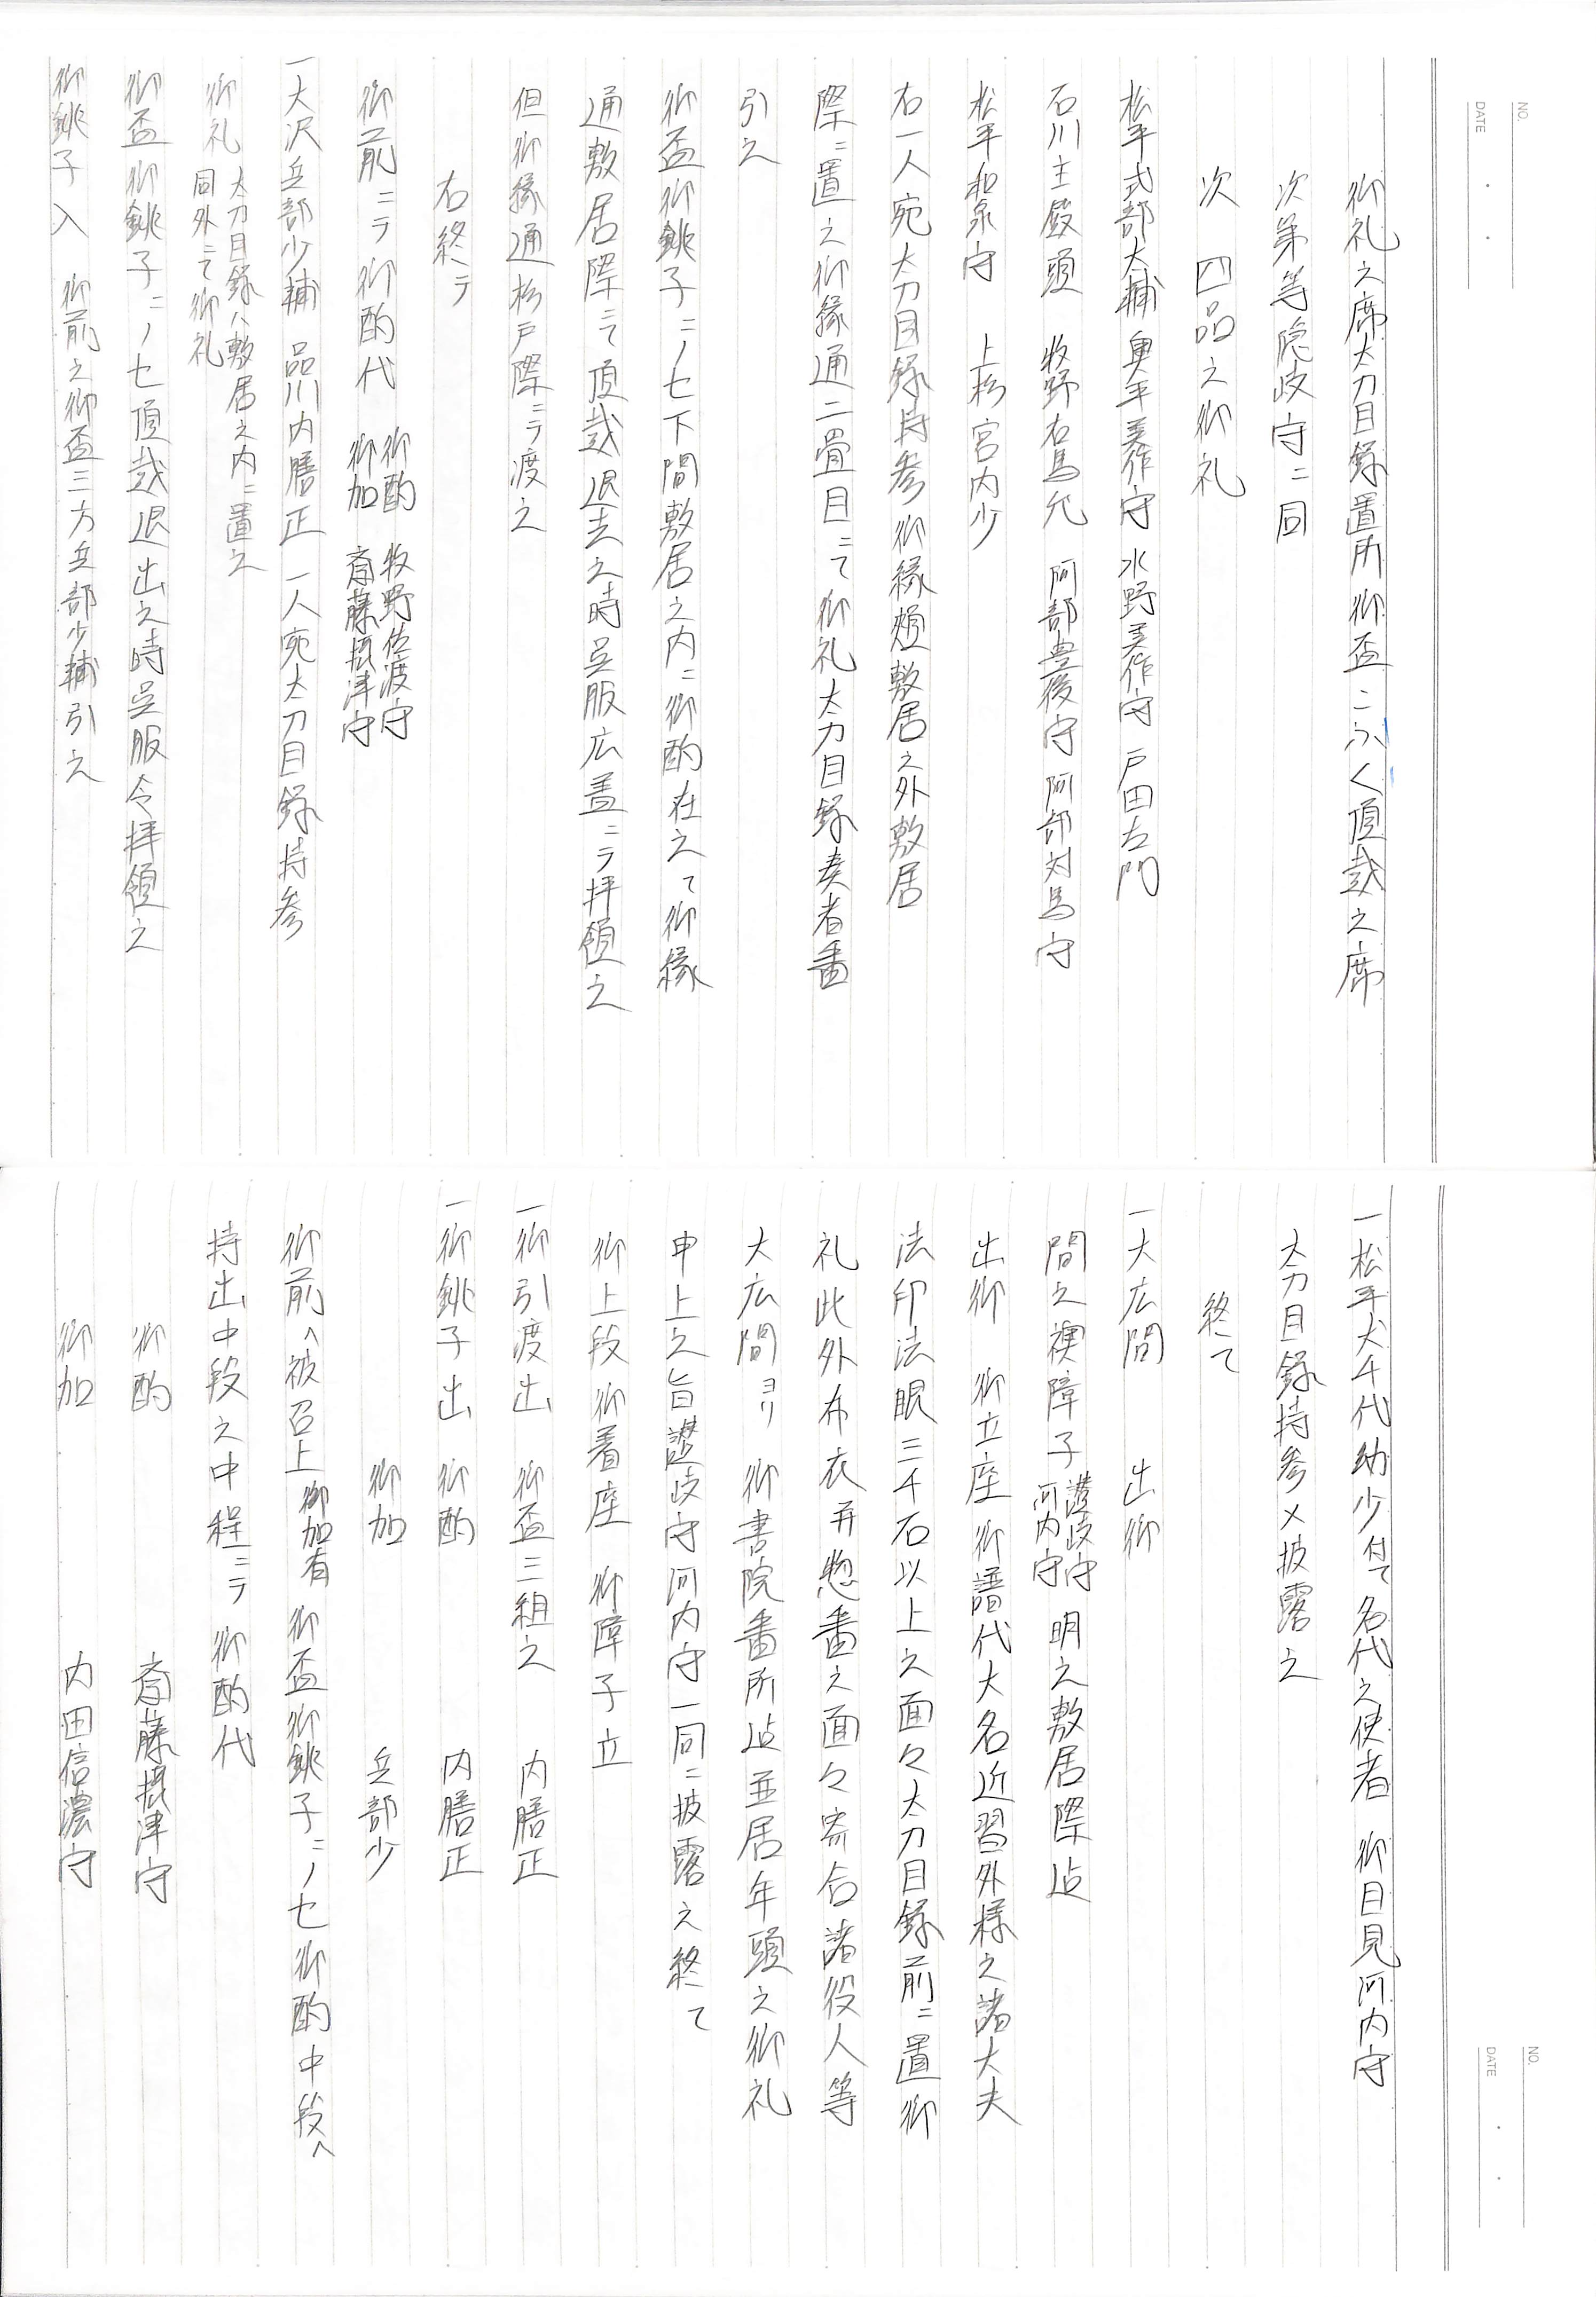 NO.
DATE
御礼之席太刀目録置所 御盃こふく頂戴之席
次第等隠岐守ニ同
次 四品之御礼
松平式部大輔 奥平美作守 水野美作守 戸田左門
石川主殿頭 牧野右馬允 阿部豊後守 阿部対馬守
松平和泉守 上杉宮内少
右一人宛太刀目録持参御縁頬敷居之外敷居
際ニ置之御縁通二畳目ニて御礼太刀目録奏者番
引之
御盃御銚子ニノセ下間敷居之内ニ御酌在之て御縁
通敷居際ニて頂戴退去之時呉服広蓋ニヲ拝領之
但御縁通杉戸際ニヲ渡之
右終ヲ
御前ニヲ御酌代 御酌 牧野佐渡守
御加 斎藤摂津守
一大沢兵部少輔 品川内膳正 一人宛太刀目録持参
御礼 太刀目録ハ敷居之内ニ置之
同外ニて御礼
御盃御銚子ニノセ頂戴退出之時呉服令拝領之
御銚子入 御前之御盃三方兵部少輔引之
NO.
DATE
一松平犬千代幼少付て名代之使者 御目見河内守
太刀目録持参〆披露之
終て
一大広間 出御
間之襖障子 讃岐守
河内守 明之敷居際迠
出御 御立座 御譜代大名近習外様之諸大夫
法印法眼三千石以上之面々太刀目録前ニ置御
礼此外布衣并惣番之面々寄合諸役人等
大広間ヨリ 御書院番所迠並居年頭之御礼
申上之旨讃岐守河内守一同ニ披露之終て
御上段御着座 御障子立
一御引渡出 御盃三組之 内膳正
一御銚子出 御酌 内膳正
御加 兵部少
御前へ被召上 御加有 御盃御銚子ニノセ御酌中段へ
持出中段之中程ニヲ御酌代
御酌 斎藤摂津守
御加 内田信濃守